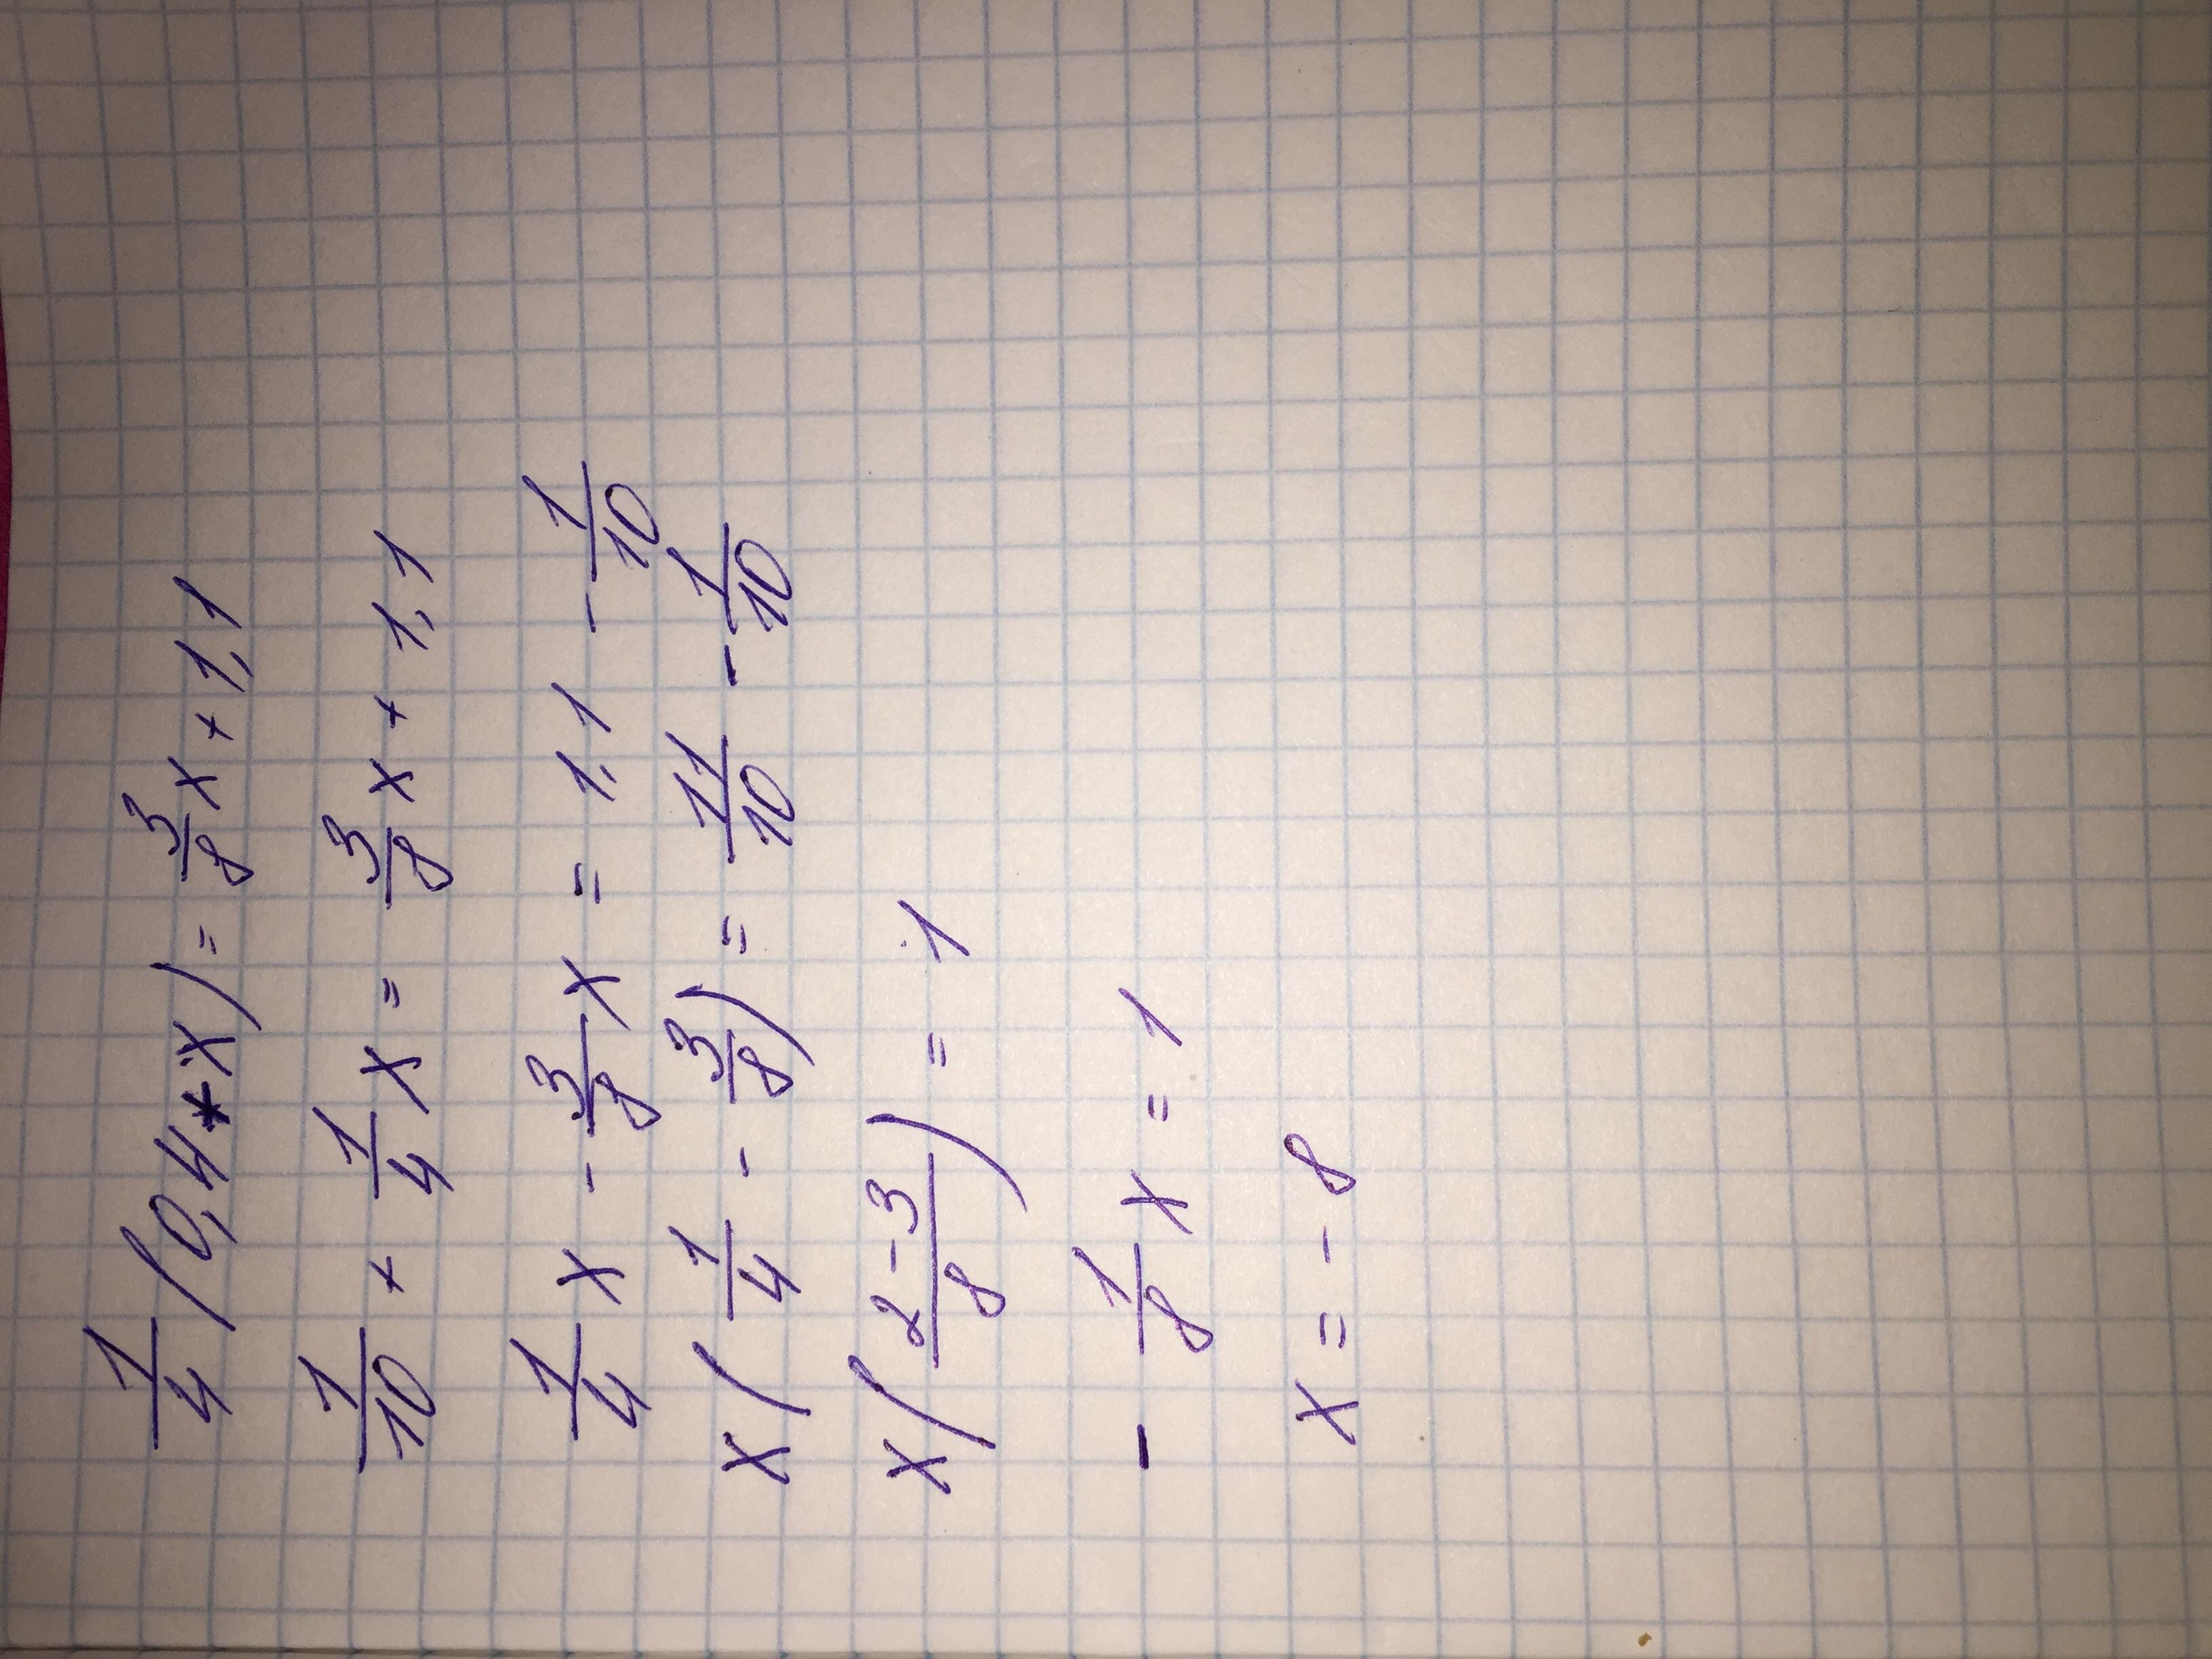 1/4 (0,4*x) = 3/8 x + 1,1
1/10 + 1/4 x = 3/8 x + 1,1
1/4 x - 3/8 x = 1,1 - 1/10
x(1/4 - 3/8) = 11/10 - 1/10
x((2-3)/8) = 1
- 1/8 x = 1
x = - 8